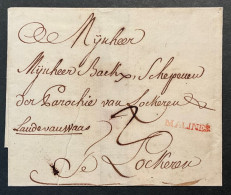 De Mÿnheer
Mÿnheer Back, Schepenen
der Parochie van Lockeren
Lande van Waas
MALINES
Te Lockeren